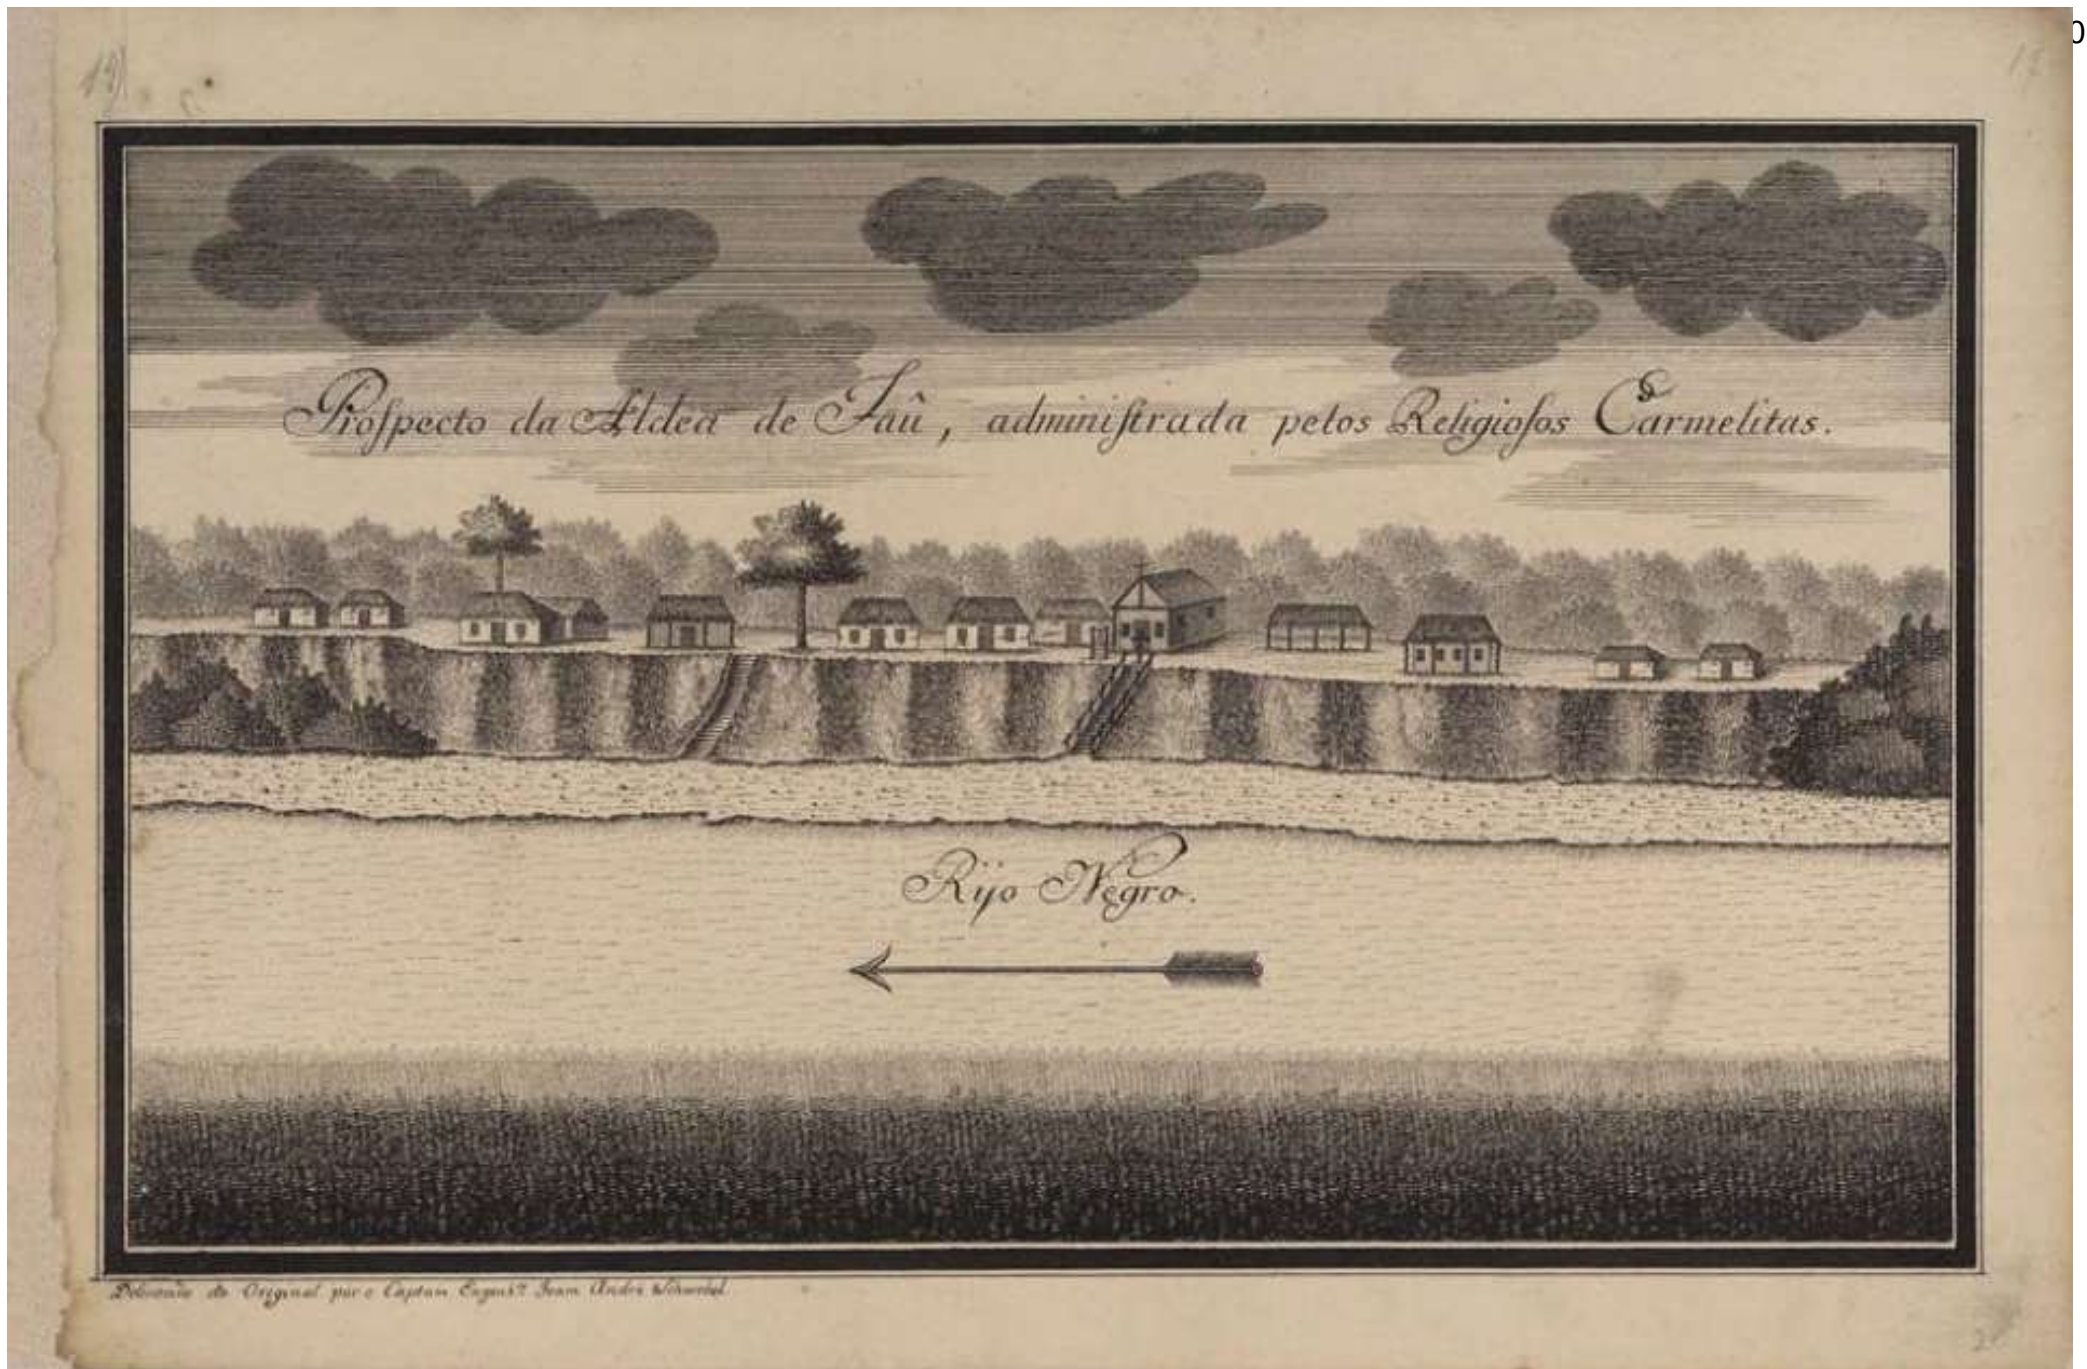 19
Prospecto da Aldea de Jaû, administrada pelos Religiosos Carmelitas.
Rijo Negro.
Deliniado do Original por o Captam Engenhº Joam André Schwebel
0